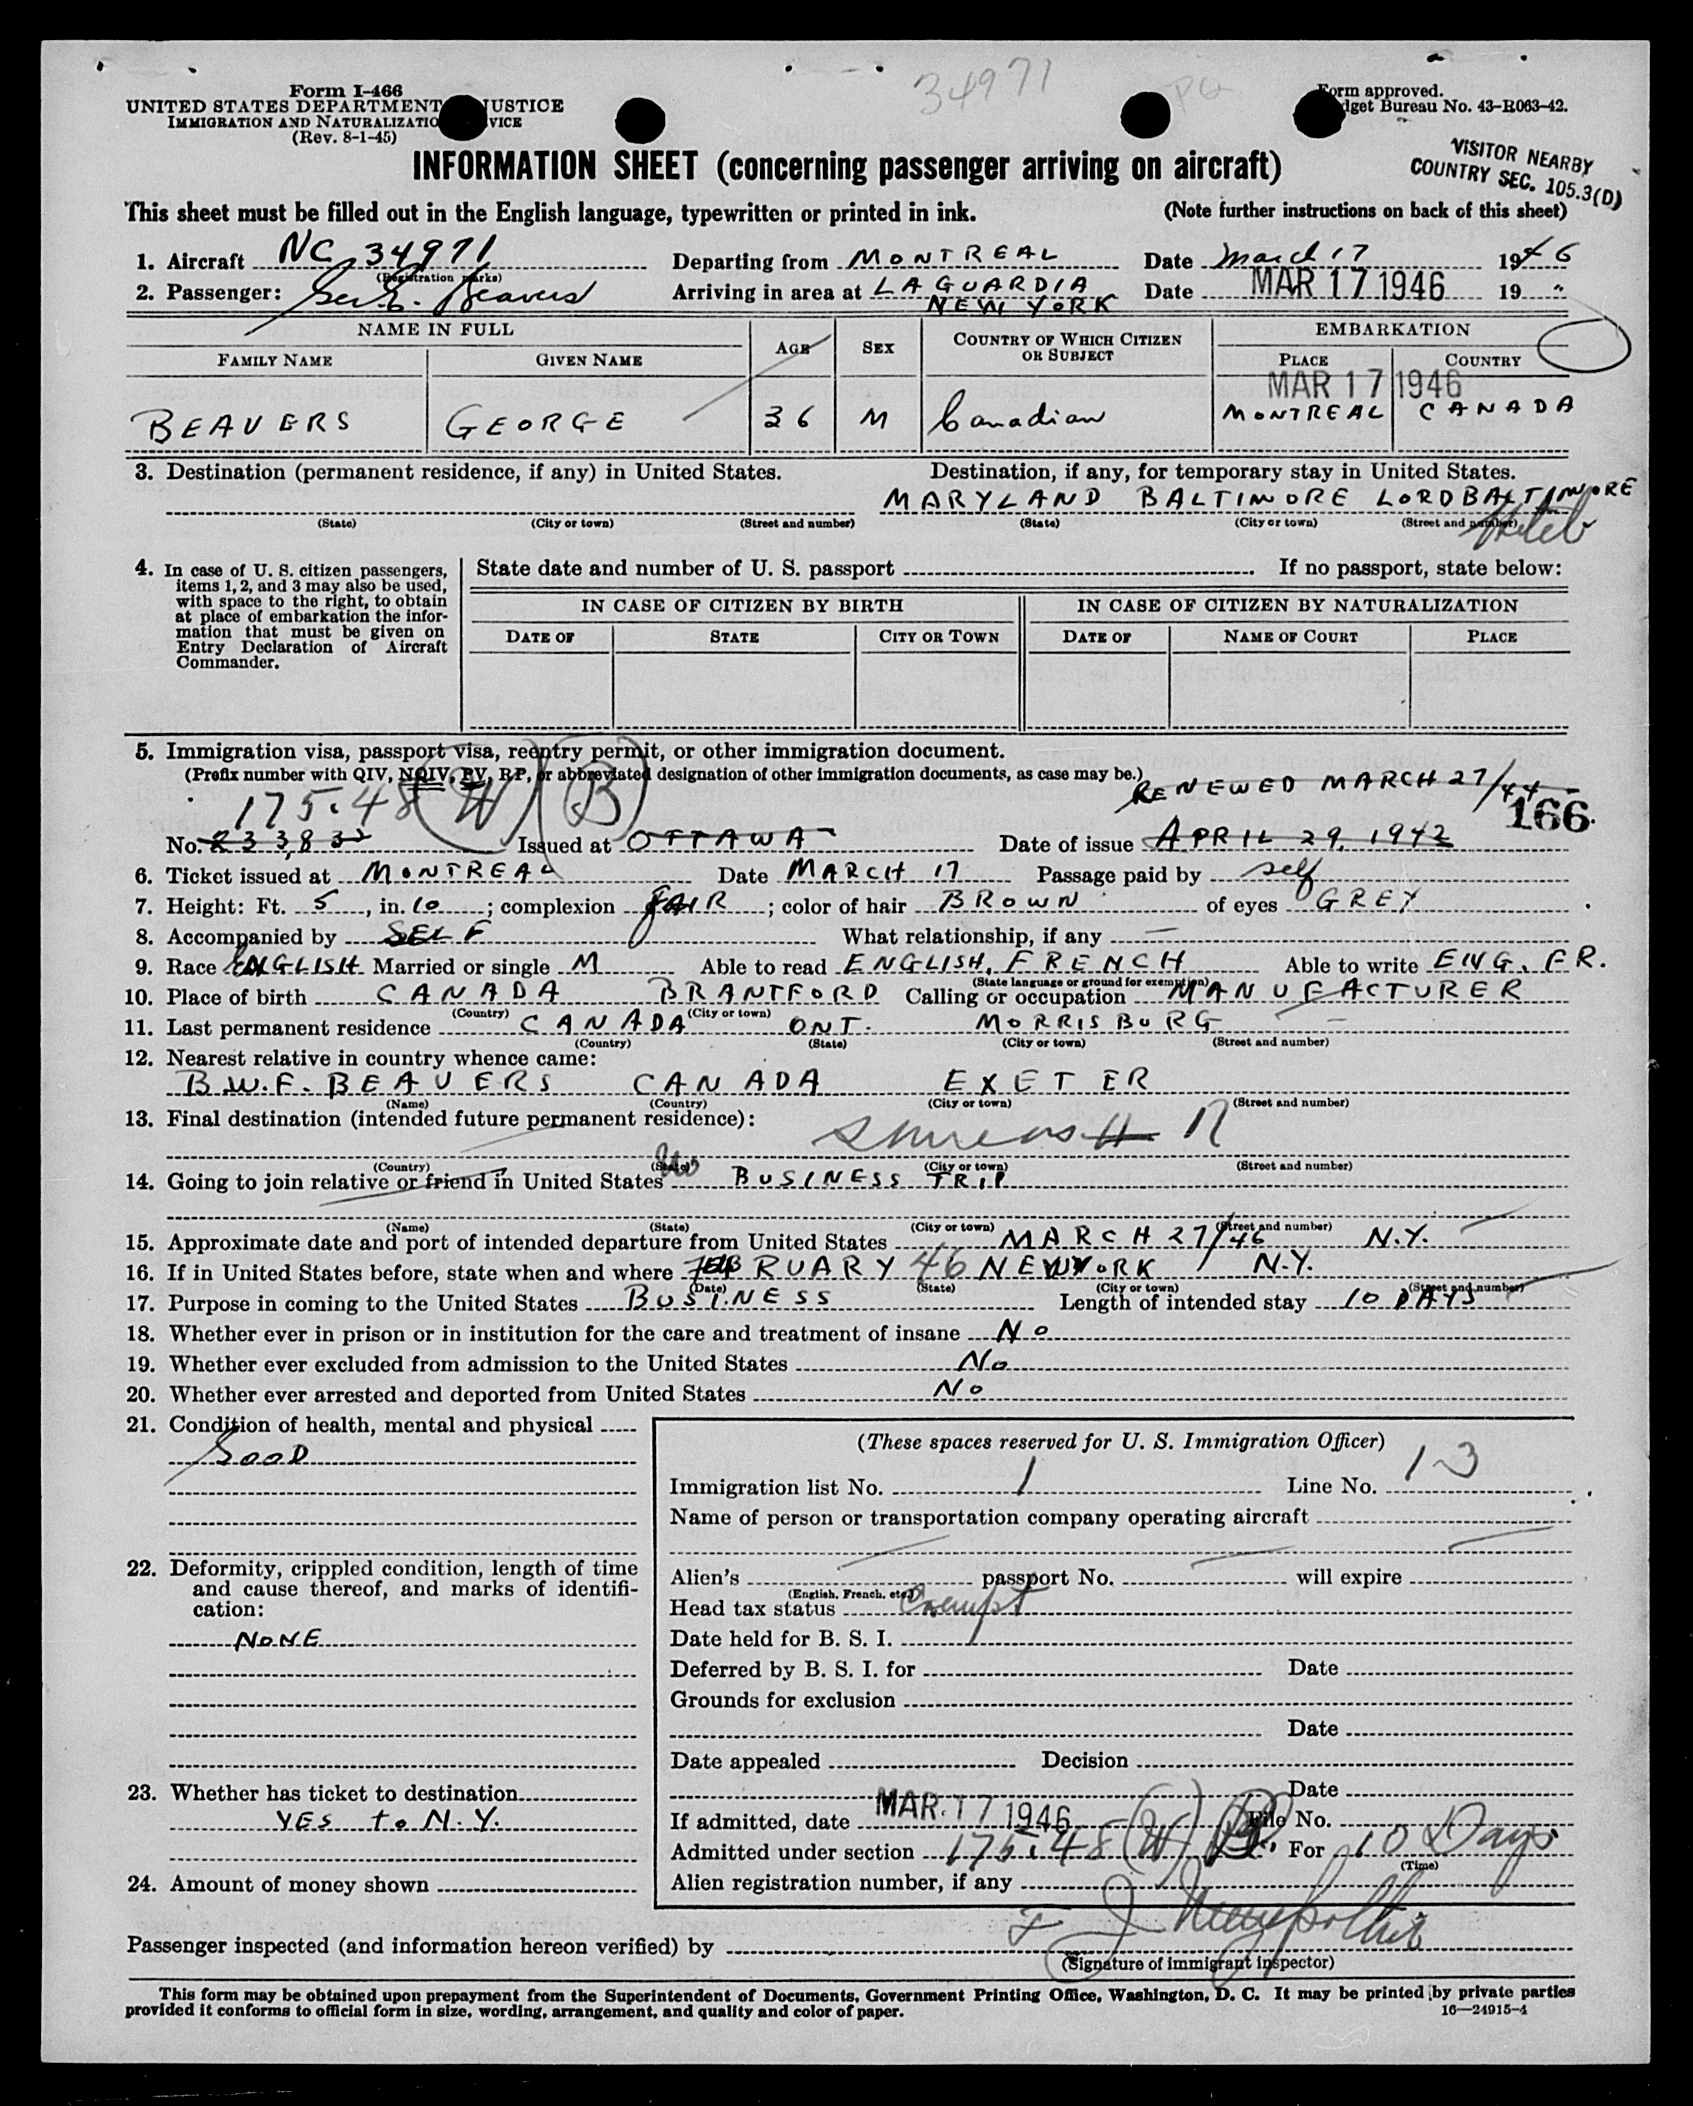 34971
Form I-466
UNITED STATES DEPARTMENT JUSTICE
IMMIGRATION AND NATURALIZATIO VICE
(Rev. 8-1-45)
Form approved.
dget Bureau No. 43-R063-42.
VISITOR NEARBY
COUNTRY SEC. 105.3(D)
INFORMATION SHEET (concerning passenger arriving on aircraft)
This sheet must be filled out in the English language, typewritten or printed in ink. (Note further instructions on back of this sheet)
1. Aircraft NC 34971 Departing from MONTREAL Date March 17 1946
(Registration marks)
2. Passenger: Geo. E. Beavers Arriving in area at LAGUARDIA Date MAR 17 1946 19 "
NEW YORK
NAME IN FULL AGE SEX COUNTRY OF WHICH CITIZEN OR SUBJECT EMBARKATION
FAMILY NAME GIVEN NAME PLACE COUNTRY
MAR 17 1946
BEAVERS GEORGE 36 M Canadian MONTREAL CANADA
3. Destination (permanent residence, if any) in United States. Destination, if any, for temporary stay in United States.
MARYLAND BALTIMORE LORD BALTIMORE
(State) (City or town) (Street and number) (State) (City or town) (Street and number) Hotel
4. In case of U. S. citizen passengers, items 1, 2, and 3 may also be used, with space to the right, to obtain at place of embarkation the information that must be given on Entry Declaration of Aircraft Commander.
State date and number of U. S. passport If no passport, state below:
IN CASE OF CITIZEN BY BIRTH IN CASE OF CITIZEN BY NATURALIZATION
DATE OF STATE CITY OR TOWN DATE OF NAME OF COURT PLACE
5. Immigration visa, passport visa, reentry permit, or other immigration document.
(Prefix number with QIV, NQIV, PV, RP, or abbreviated designation of other immigration documents, as case may be.)
RENEWED MARCH 27/44
175.48 (W) (B) 166
No. 23383 Issued at OTTAWA Date of issue APRIL 29, 1942
6. Ticket issued at MONTREAL Date MARCH 17 Passage paid by self
7. Height: Ft. 5, in. 10; complexion FAIR; color of hair BROWN of eyes GREY
8. Accompanied by SELF What relationship, if any —
9. Race ENGLISH Married or single M Able to read ENGLISH, FRENCH Able to write ENG. FR.
(State language or ground for exemption)
10. Place of birth CANADA BRANTFORD Calling or occupation MANUFACTURER
(Country) (City or town)
11. Last permanent residence CANADA ONT. MORRISBURG —
(Country) (State) (City or town) (Street and number)
12. Nearest relative in country whence came:
B.W.F. BEAVERS CANADA EXETER
(Name) (Country) (City or town) (Street and number)
13. Final destination (intended future permanent residence):
(Country) (State) (City or town) (Street and number)
14. Going to join relative or friend in United States No BUSINESS TRIP
(Name) (State) (City or town) (Street and number)
15. Approximate date and port of intended departure from United States MARCH 27/46 N.Y.
16. If in United States before, state when and where FEBRUARY 46 NEW YORK N.Y.
(Date) (State) (City or town) (Street and number)
17. Purpose in coming to the United States BUSINESS Length of intended stay 10 DAYS
18. Whether ever in prison or in institution for the care and treatment of insane NO
19. Whether ever excluded from admission to the United States NO
20. Whether ever arrested and deported from United States NO
21. Condition of health, mental and physical
GOOD
22. Deformity, crippled condition, length of time and cause thereof, and marks of identification:
NONE
23. Whether has ticket to destination
YES to N.Y.
24. Amount of money shown
(These spaces reserved for U. S. Immigration Officer)
Immigration list No. 1 Line No. 13
Name of person or transportation company operating aircraft
Alien's passport No. will expire
(English, French, etc.)
Head tax status Exempt
Date held for B. S. I.
Deferred by B. S. I. for Date
Grounds for exclusion
Date
Date appealed Decision
Date
If admitted, date MAR 17 1946 File No.
Admitted under section 175.48 (W) (B) For 10 Days
(Time)
Alien registration number, if any
Passenger inspected (and information hereon verified) by
(Signature of immigrant inspector)
This form may be obtained upon prepayment from the Superintendent of Documents, Government Printing Office, Washington, D. C. It may be printed by private parties
provided it conforms to official form in size, wording, arrangement, and quality and color of paper. 16—24915-4